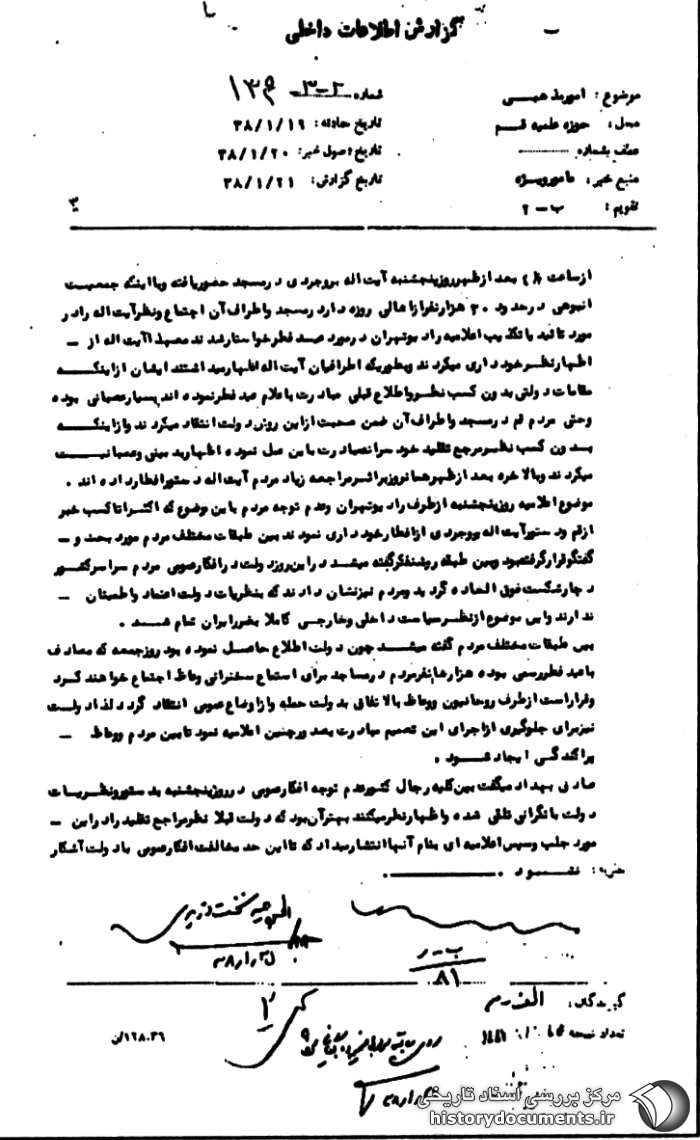 گزارش اطلاعات داخلی
موضوع: امور مذهبی
شماره ۲-۳-
محل: حوزه علمیه قم
تاریخ حادثه: ۳۸/۱/۱۹
عطف بشماره
تاریخ وصول خبر: ۳۸/۱/۲۰
منبع خبر: مامور ویژه
تاریخ گزارش: ۳۸/۱/۲۱
تقویم: ب-۲
۳
از ساعت ۴ بعد از ظهر روز پنجشنبه آیت اله بروجردی در مسجد حضور یافته و با اینکه جمعیت
انبوهی در حدود ۳۰ هزار نفر از اهالی روزه دار در مسجد و اطراف آن اجتماع و نظر آیت اله را در
مورد تائید یا تکذیب اعلامیه رادیو تهران در مورد عید فطر خواستار شدند معهذا آیت اله از -
اظهار نظر خود داری میکردند و بطوریکه اطرافیان آیت اله اظهار میداشتند ایشان از اینکه
مقامات دولتی بدون کسب نظر و اطلاع قبلی مبادرت با علام عید فطر نموده اند بسیار عصبانی بوده
وحتی مردم قم در مسجد و اطراف آن ضمن صحبت از این روش دولت انتقاد میکردند و از اینکه
بدون کسب نظر مرجع تقلید خود سرانه مبادرت با این عمل نموده اظهار بدبینی و عصبانیت
میکردند و بالاخره بعد از ظهر همانروز بر اثر مراجعه زیاد مردم آیت اله دستور افطار داده اند.
موضوع اعلامیه روز پنجشنبه از طرف رادیو تهران و عدم توجه مردم با این موضوع که اکثرا تا کسب خبر
از قم و دستور آیت اله بروجردی از افطار خود داری نمودند بین طبقات مختلف مردم مورد بحث و -
گفتگو قرار گرفته بود و بین طبقه روشنفکر گفته میشد در این روز دولت در افکار عمومی مردم سراسر کشور
دچار شکست فوق العاده گردید و مردم نیز نشان دادند که بنظریات دولت اعتماد و اطمینان -
ندارند و این موضوع از نظر سیاست داخلی و خارجی کاملا بضرر ایران تمام شد.
بین طبقات مختلف مردم گفته میشد چون دولت اطلاع حاصل نموده بود روز جمعه که مصادف
با عید فطر رسمی بوده هزارها نفر مردم در مساجد برای استماع سخنرانی وعاظ اجتماع خواهند کرد
و قرار است از طرف روحانیون و وعاظ بالاتفاق بدولت حمله و از اوضاع عمومی انتقاد گردد لذا دولت
نیز برای جلوگیری از اجرای این تصمیم مبادرت بصدور چنین اعلامیه نمود تا بین مردم و وعاظ -
پراکندگی ایجاد شود.
میگفت بین کلیه رجال کشور عدم توجه افکار عمومی در روز پنجشنبه بدستور و نظریات
دولت با نگرانی تلقی شده و اظهار نظر میکنند بهتر آن بود که دولت قبلا نظر مراجع تقلید را در این -
مورد جلب و سپس اعلامیه ای بنام آنها انتشار میداد که تا این حد مخالفت افکار عمومی با دولت آشکار
نشود.
نخست وزیر
ب-ر
۸۱
گیرندگان:
تعداد نسخه
مرکز بررسی اسناد تاریخی
historydocuments.ir